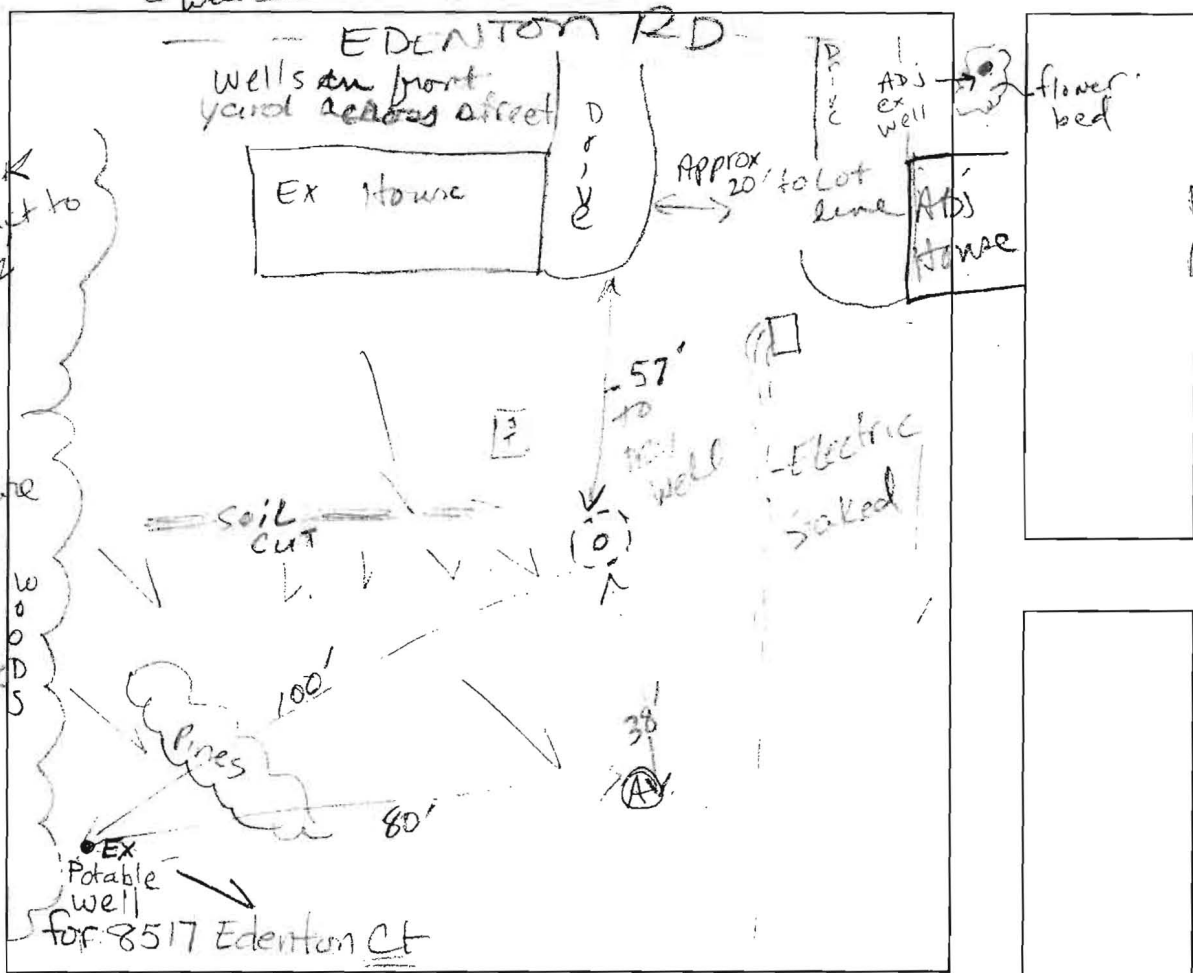 EDENTON RD
wells in front
yard across street
Drive
Ex House
Approx
20' to Lot
line
Drive
ADj
ex
well
flower
bed
ADJ
House
57'
to
well
Electric
SOIL
CUT
WOODS
100'
Pines
38'
A
80'
EX
Potable
well
for 8517 Edenton Ct